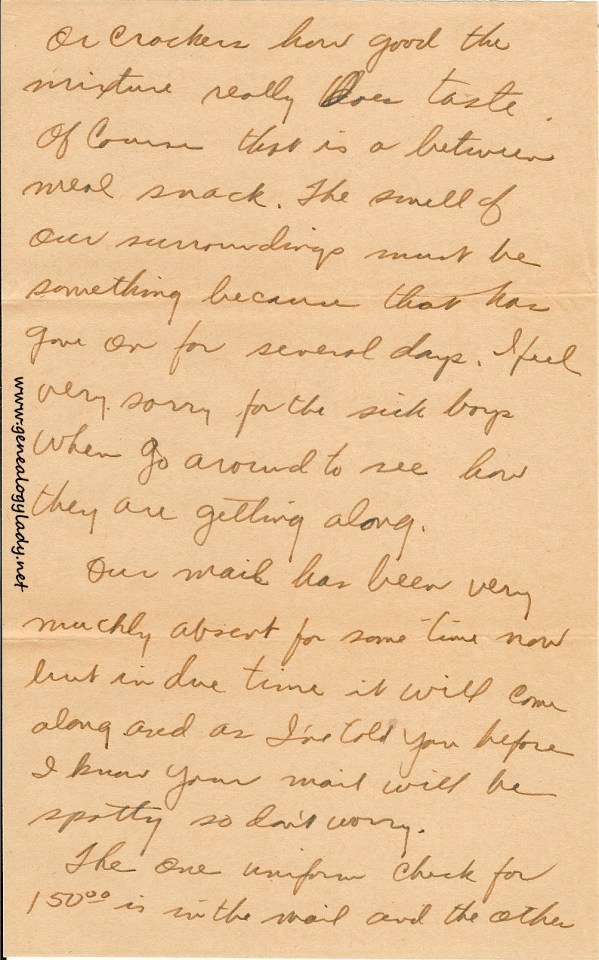 or crackers how good the
mixture really does taste.
Of Course that is a between
meal snack. The smell of
our surroundings must be
something because that has
gone on for several days. I feel
very sorry for the sick boys
when go around to see how
they are getting along.
Our mail has been very
muchly absent for some time now
but in due time it will come
along and as I've told you before
I know your mail will be
spotty so don't worry.
The one uniform check for
150⁰⁰ is in the mail and the other
www.genealogylady.net